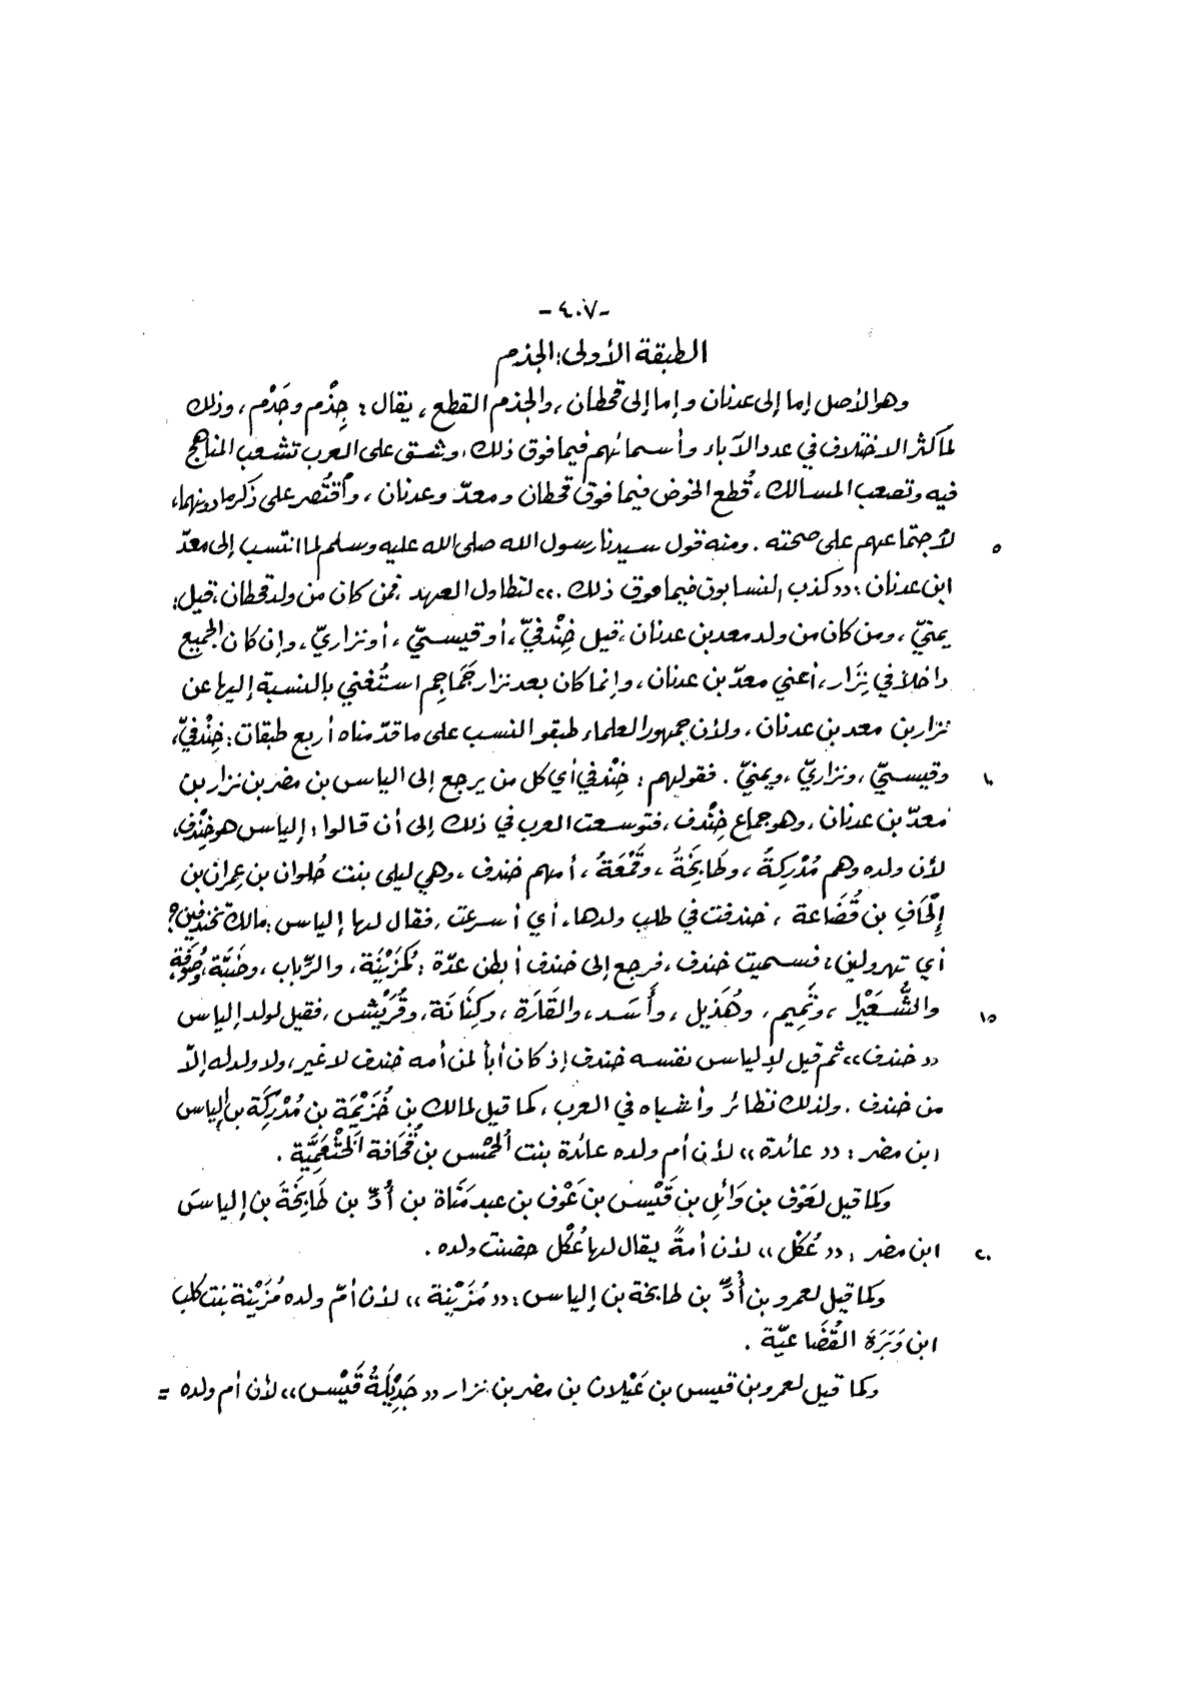 -٤٠٧-
الطبقة الأولى: الجذم
وهو الأصل إما إلى عدنان وإما إلى قحطان، والجذم القطع، يقال: جِذْم وجَذْم، وذلك
لما كثر الاختلاف في عدد الآباء وأسمائهم فيما فوق ذلك، وشق على العرب تشعب المناهج
فيه وتصعب المسالك، قُطع الخوض فيما فوق قحطان ومعدّ وعدنان، واقتُصر على ذكر ما دونهما،
٥ لاجتماعهم على صحته. ومنه قول سيدنا رسول الله صلى الله عليه وسلم لما انتسب إلى معدّ
ابن عدنان: «كذب النسابون فيما فوق ذلك.» لتطاول العهد، فمن كان من ولد قحطان، قيل:
يمنيّ، ومن كان من ولد معد بن عدنان، قيل خِنْدفيّ، أو قيسيّ، أو نزاريّ، وإن كان الجميع
داخلاً في نِزَار، أعني معدّ بن عدنان، وإنما كان بعد نزار جَمَاجِم استُغني بالنسبة إليها عن
نزار بن معد بن عدنان، ولأن جمهور العلماء طبقو النسب على ما قدّمناه أربع طبقات: خِنْدفيّ،
١٠ وقيسيّ، ونزاريّ، ويمنيّ. فقولهم: خِنْدفي أي كل من يرجع إلى الياس بن مضر بن نزار بن
معدّ بن عدنان، وهو جماع خِنْدف، فتوسعت العرب في ذلك إلى أن قالوا: إلياس هو خِنْدف،
لأن ولده وهم مُدْرِكةُ، وطَابِخَةُ، وقَمْعَةُ، أمهم خندف، وهي ليلى بنت حُلوان بن عِمران بن
إلْحَافِ بن قُضَاعة، خندفت في طلب ولدها، أي أسرعت، فقال لها إلياس: مالك تخندفين؟
أي تهرولين، فسميت خندف، فرجع إلى خندف أبطن عدّة: كمُزَيْنَة، والرِّباب، وضَبَّة، وصُوفَة،
١٥ والشُّعَيْرا، وتَمِيم، وهُذَيل، وأَسَد، والقَارَة، وكِنَانَة، وقُرَيْش، فقيل لولد إلياس
«خندف» ثم قيل لإلياس نفسه خندف إذ كان أباً لمن أمه خندف لا غير، ولا ولد له إلاّ
من خندف. ولذلك نظائر وأشباه في العرب، كما قيل لمالك بن خُزَيْمَة بن مُدْرِكَة بن إلياس
ابن مضر: «عائدة» لأن أم ولده عائدة بنت الخُمْس بن قُحَافة الخَثْعَمِيَّة.
وكما قيل لعَوْف بن وَائِل بن قَيْس بن عَوْف بن عبد مَنَاة بن أُدِّ بن طَابِخَةَ بن إلياسَ
٢٠ ابن مضر: «عُكْل» لأن أمةً يقال لها عُكْل حضنت ولده.
وكما قيل لعمرو بن أُدِّ بن طابخة بن إلياس: «مُزَيْنة» لأن أمّ ولده مُزَيْنة بنت كلب
ابن وَبَرَة القُضَاعيّة.
وكما قيل لعمرو بن قيس بن عَيْلان بن مضر بن نزار «جَدِيْلَةُ قَيْس» لأن أم ولده =